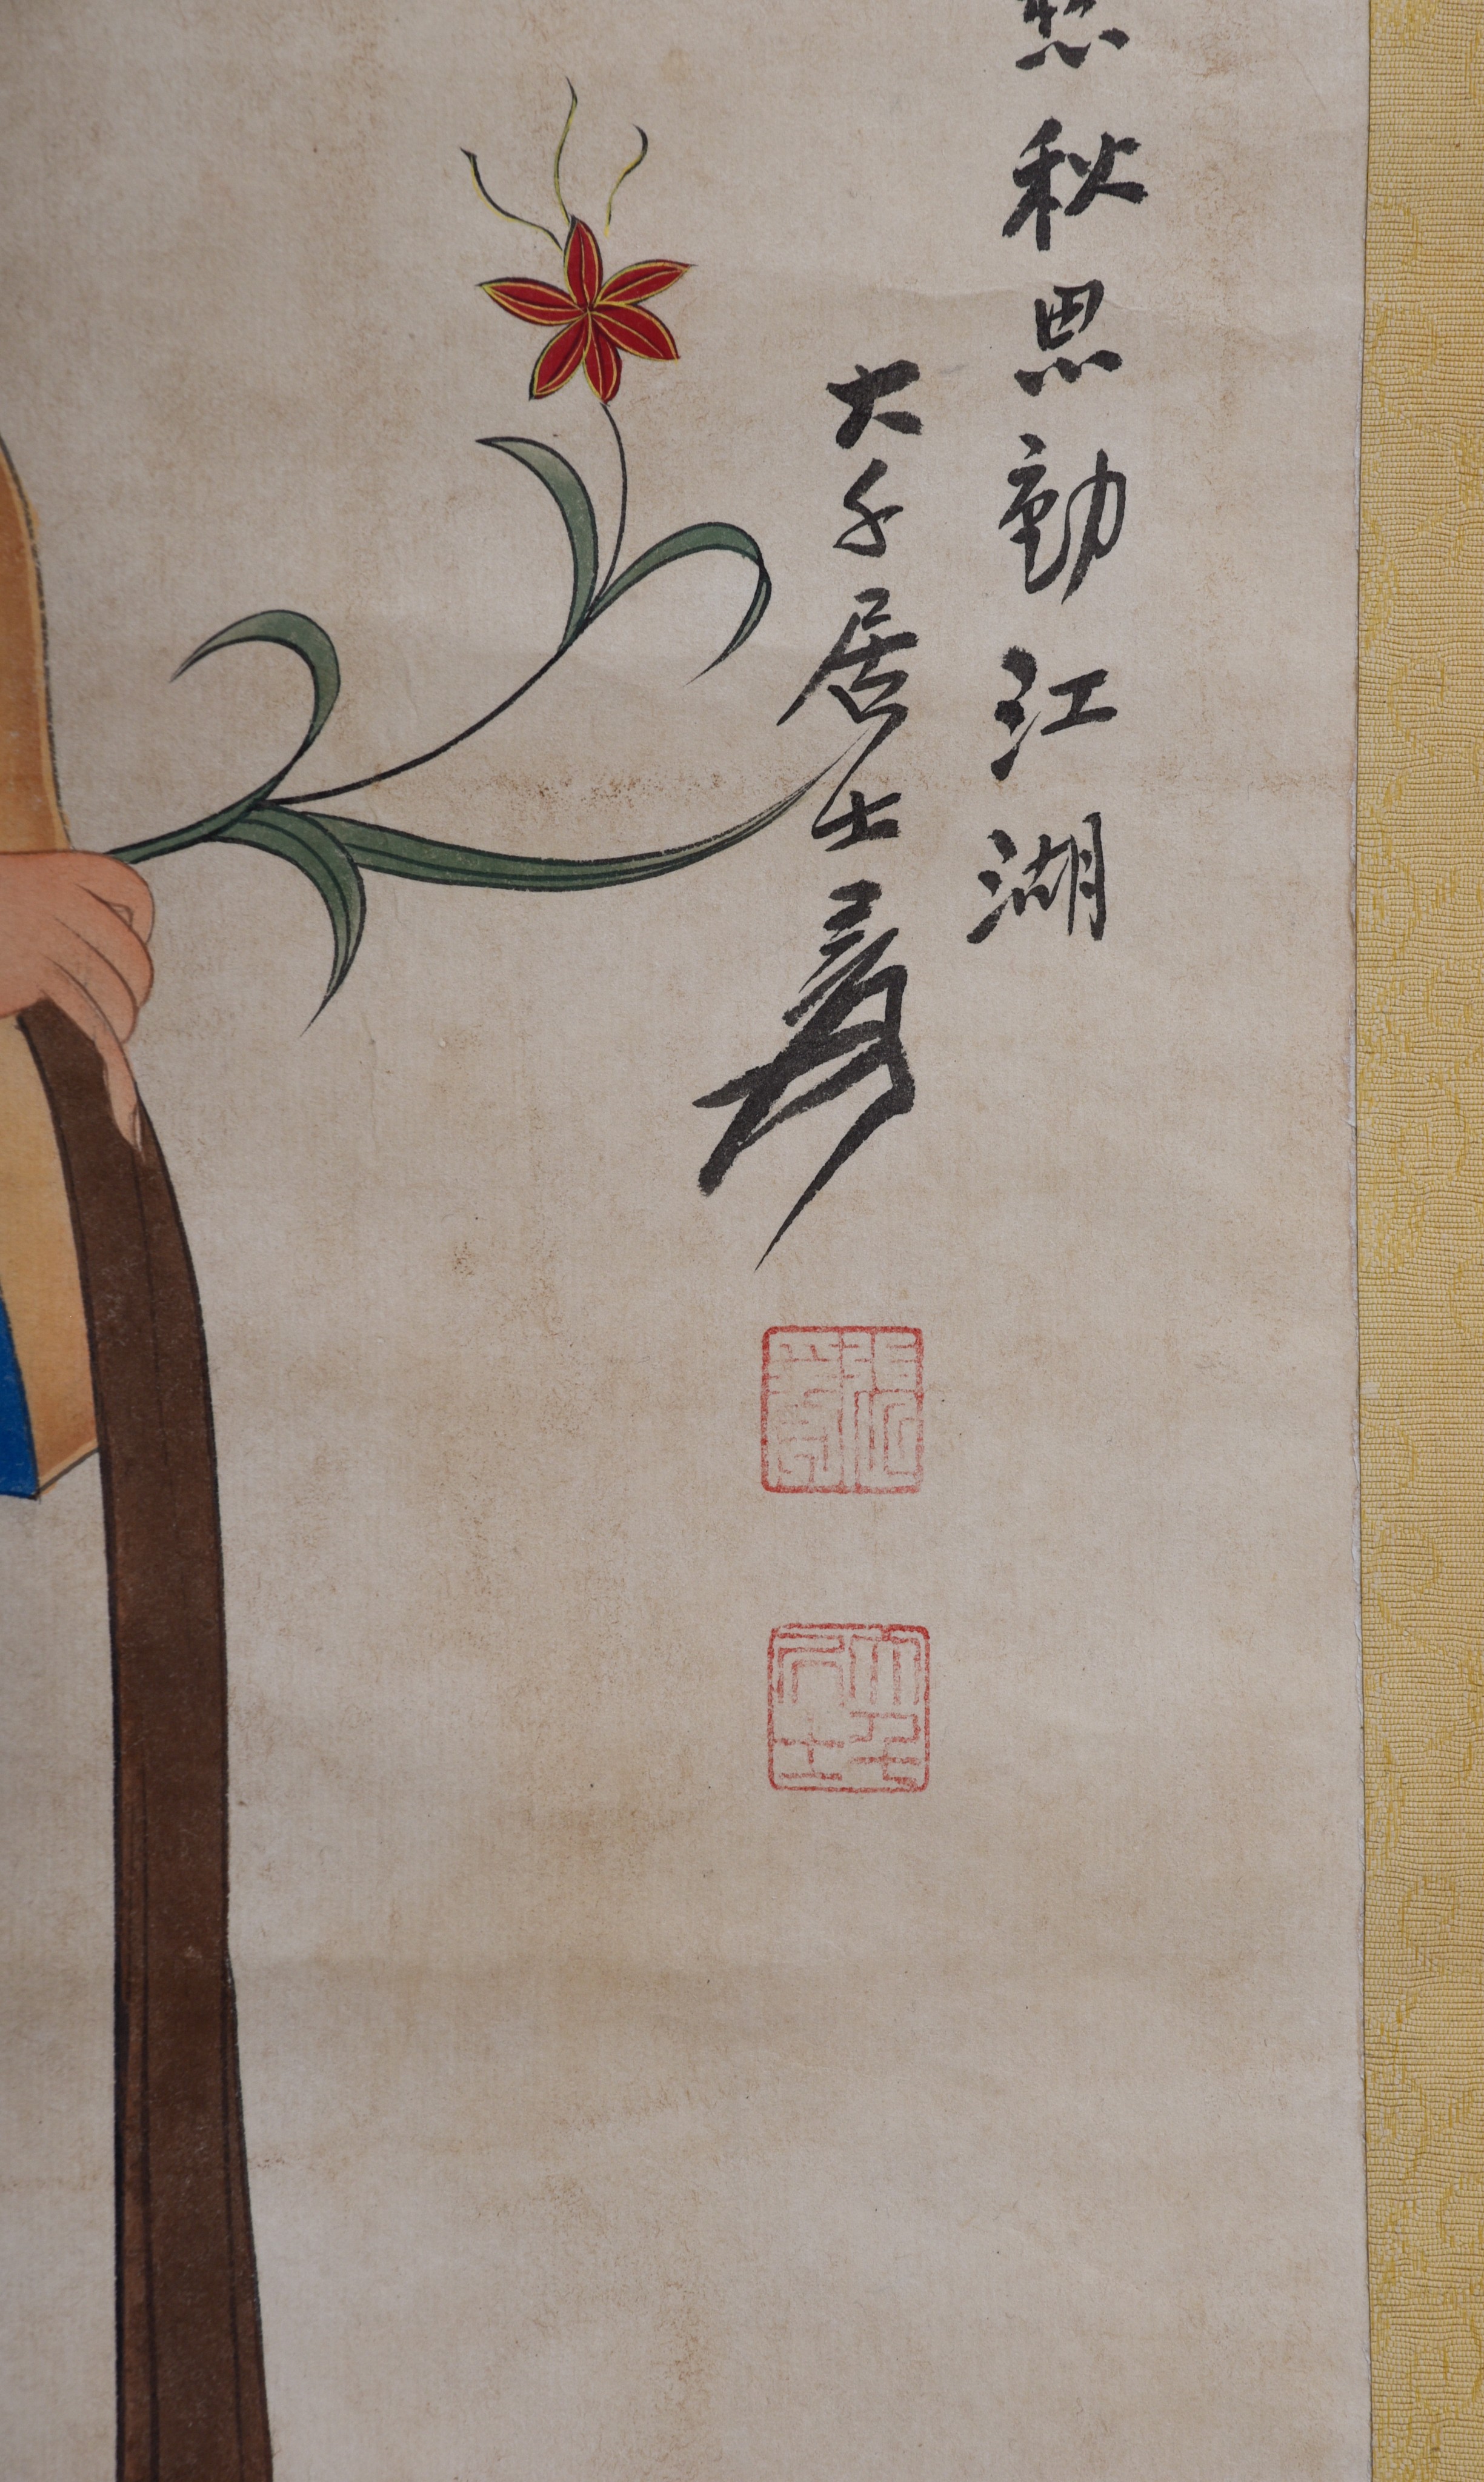 愁秋思動江湖
大千居士爰
張爰
大千居士